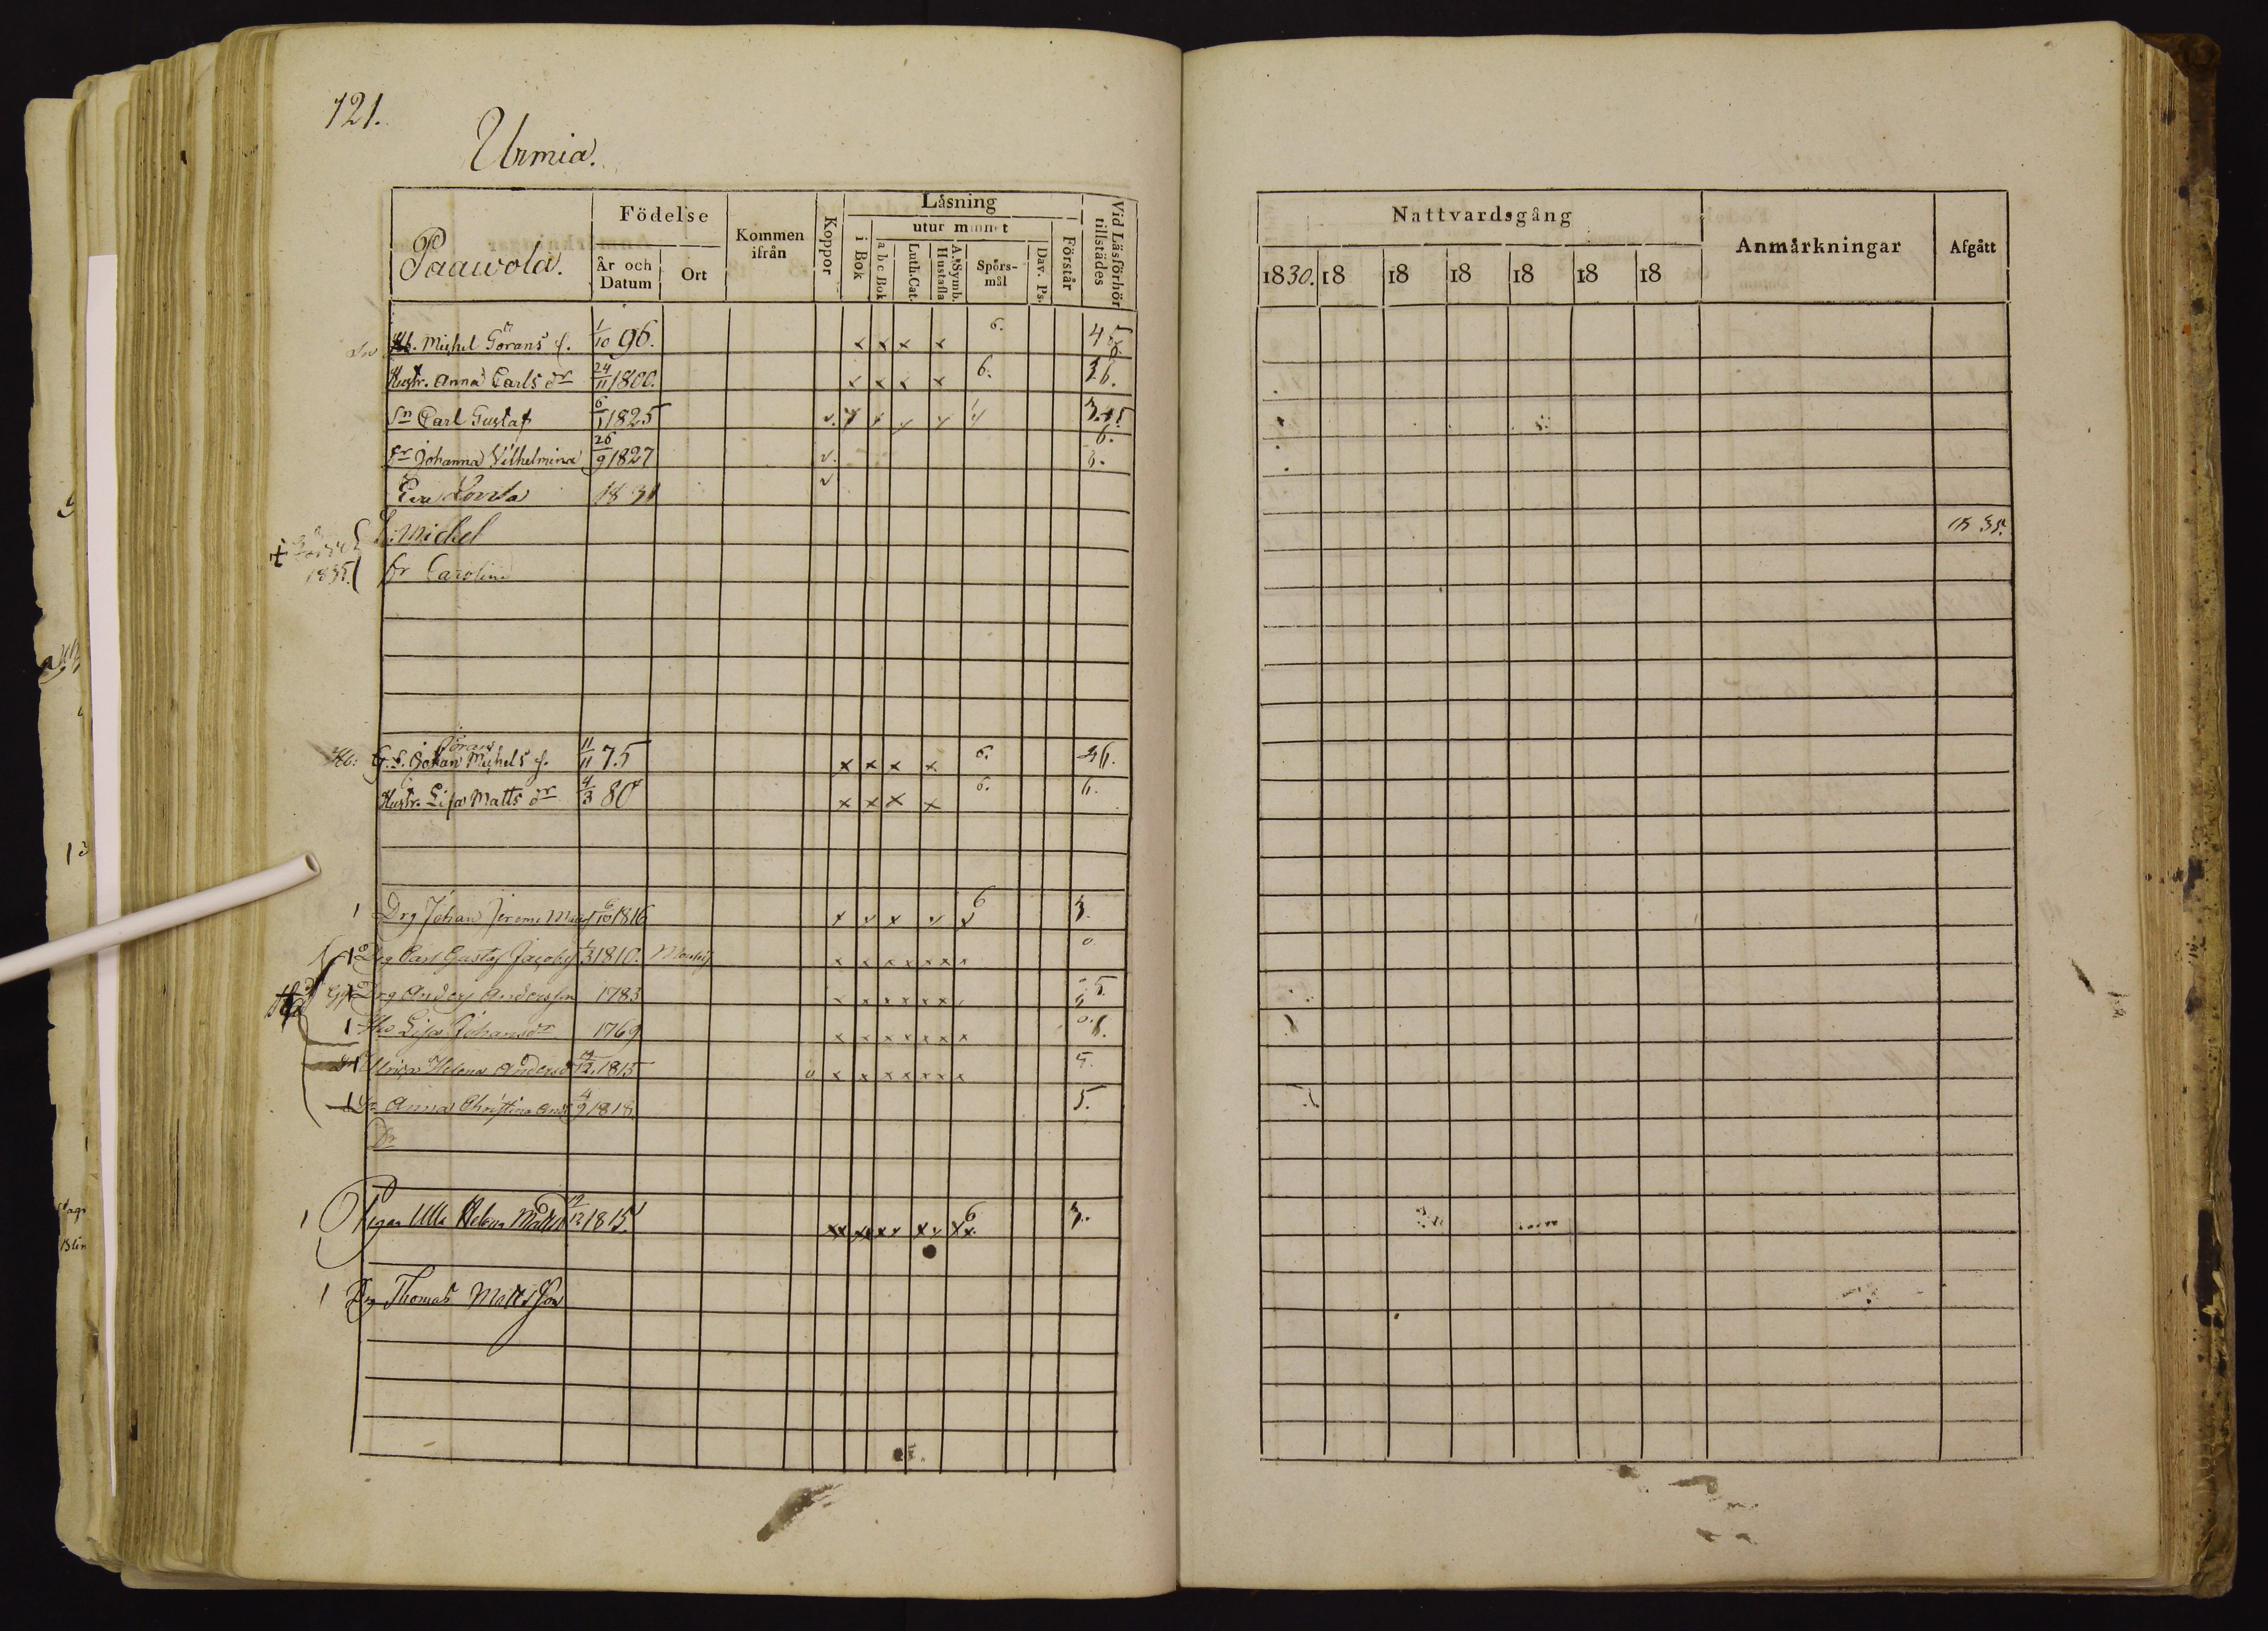 121.
Urmia.
Paawola.
Födelse
År och Datum
Ort
Kommen ifrån
Koppor
Läsning
i Bok
utur minnet
a b c Bok
Luth. Cat.
A. Symb. Hustafla
Spörs-mål
Dav. Ps.
Förstår
Vid Läsförhör tillstädes
Nattvardsgång
1830. 18 18 18 18 18 18
Anmärkningar
Afgått
Michel Görans s. 1/10 96. x x x x 6. 4 5
Hustr. Anna Carls dr 24/11 1800. x x x x 6. 3 6.
Sn Carl Gustaf 6/1 1825 v. 3. 4 5. 6.
Dr Johanna Vilhelmina 26/9 1827 v.
Eva Lovisa 1831 v
Michel 1835.
1835.
Dr Carolina
Hb: G. F. Johan Michels s. 11/11 75 x x x x 6. 36.
Göran
Hustr. Lisa Matts dr 4/3 80 x x x x 6. 6.
1 Drg Johan 6/10 1816 6 3.
1 Drg Carl Gustaf Jacobs 1810. x x x x x x x 0
Drg Anders Andersson 1783 x x x x x x 5.
1 Lisa Johansdr 1769 x x x x x x x 0. 6.
1 Ulrica Helena Andersd 12 1815 v x x x x x x x 5.
1 Dr Anna Christina And 4/9 1818. 5.
Dr
1 Pigan Ulla Helena 12 1815. xx xx xx 6 3.
1 Drg Thomas Mattsson